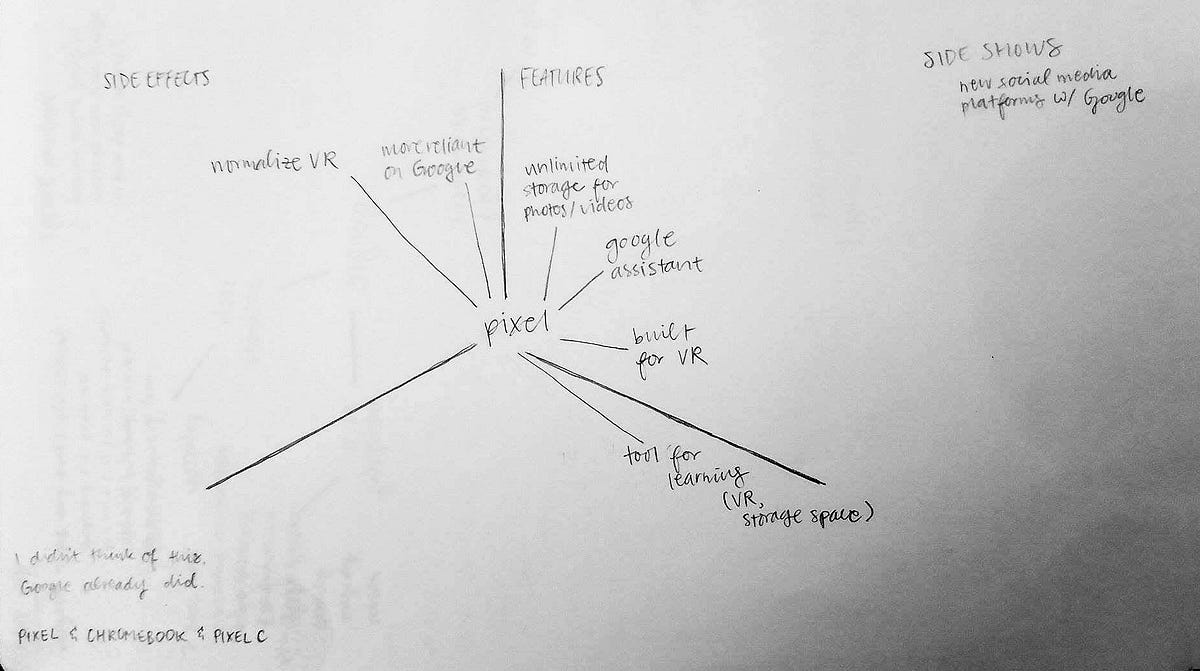 SIDE EFFECTS
FEATURES
SIDE SHOWS
new social media
platforms w/ Google
normalize VR
more reliant
on Google
unlimited
storage for
photos/videos
google
assistant
pixel
built
for VR
tool for
learning
(VR,
storage space)
I didn't think of this.
Google already did.
PIXEL & CHROMEBOOK & PIXEL C